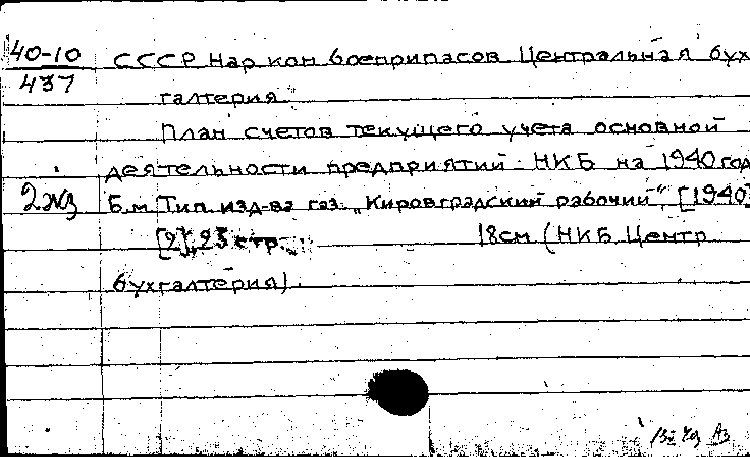 40-10
437
СССР Нар ком боеприпасов Центральная бух
галтерия
План счетов текущего учета основной
деятельности предприятий НКБ на 1940 год
2 экз
Б.м. Тип изд-ва газ. „Кировградский рабочий", [1940]
[2], 23 стр. 18 см (НКБ Центр
бухгалтерия).